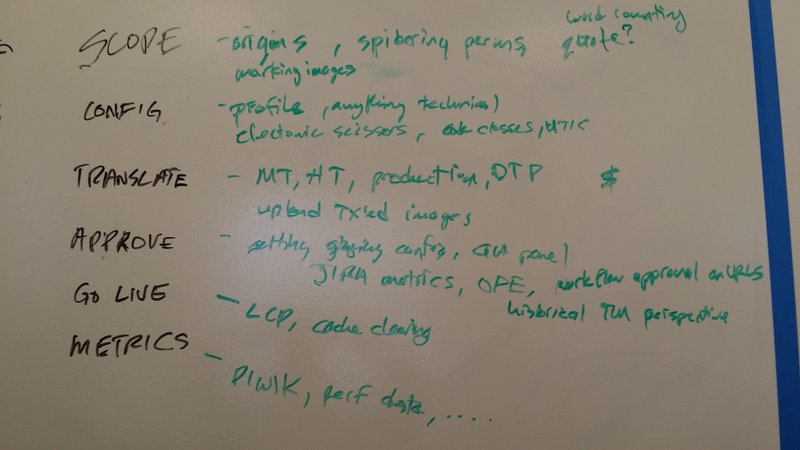 SCOPE - origins, spidering perms, word counting quote?
marking images
CONFIG - profile, anything technical
electonic scissors, classes,
TRANSLATE - MT, HT, production, DTP $
upload TXied images
APPROVE - setting staging config, QA panel
JIRA metrics, OPE, workflow approval on URLS
historical TM perspective
GO LIVE - LCP, cache clearing
METRICS - PIWIK, perf data, ....